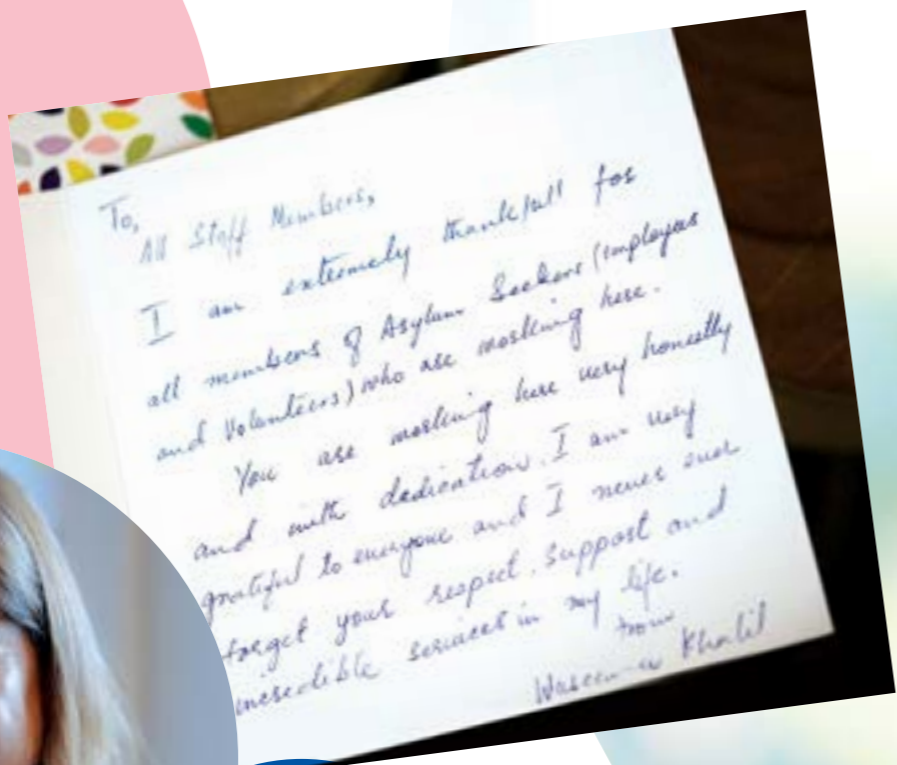 To,
All Staff Members,
I am extremely thankfull for
all members of Asylum Seekers (employees
and Volunteers) who are working here.
You are working here very honestly
and with dedication. I am very
grateful to everyone and I never ever
forget your respect, support and
incredible services in my life.
from
Khalil